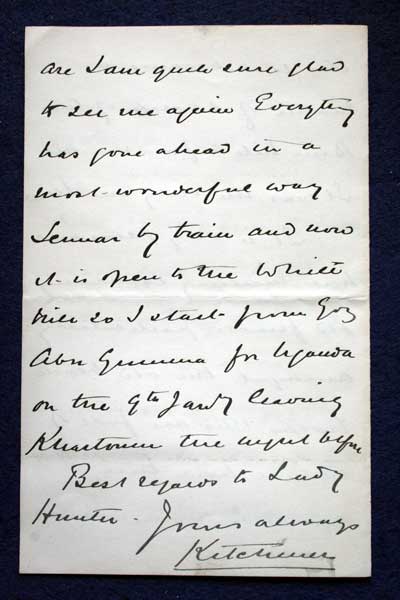 are I am quite sure glad
to see me again Everything
has gone ahead in a
most wonderful way
Sennar by train and now
it is open to the White
Nile so I start from Goz
Abu Gumma for Uganda
on the 9th Jany leaving
Khartoum the night before
Best regards to Lady
Hunter. Yours always
Kitchener